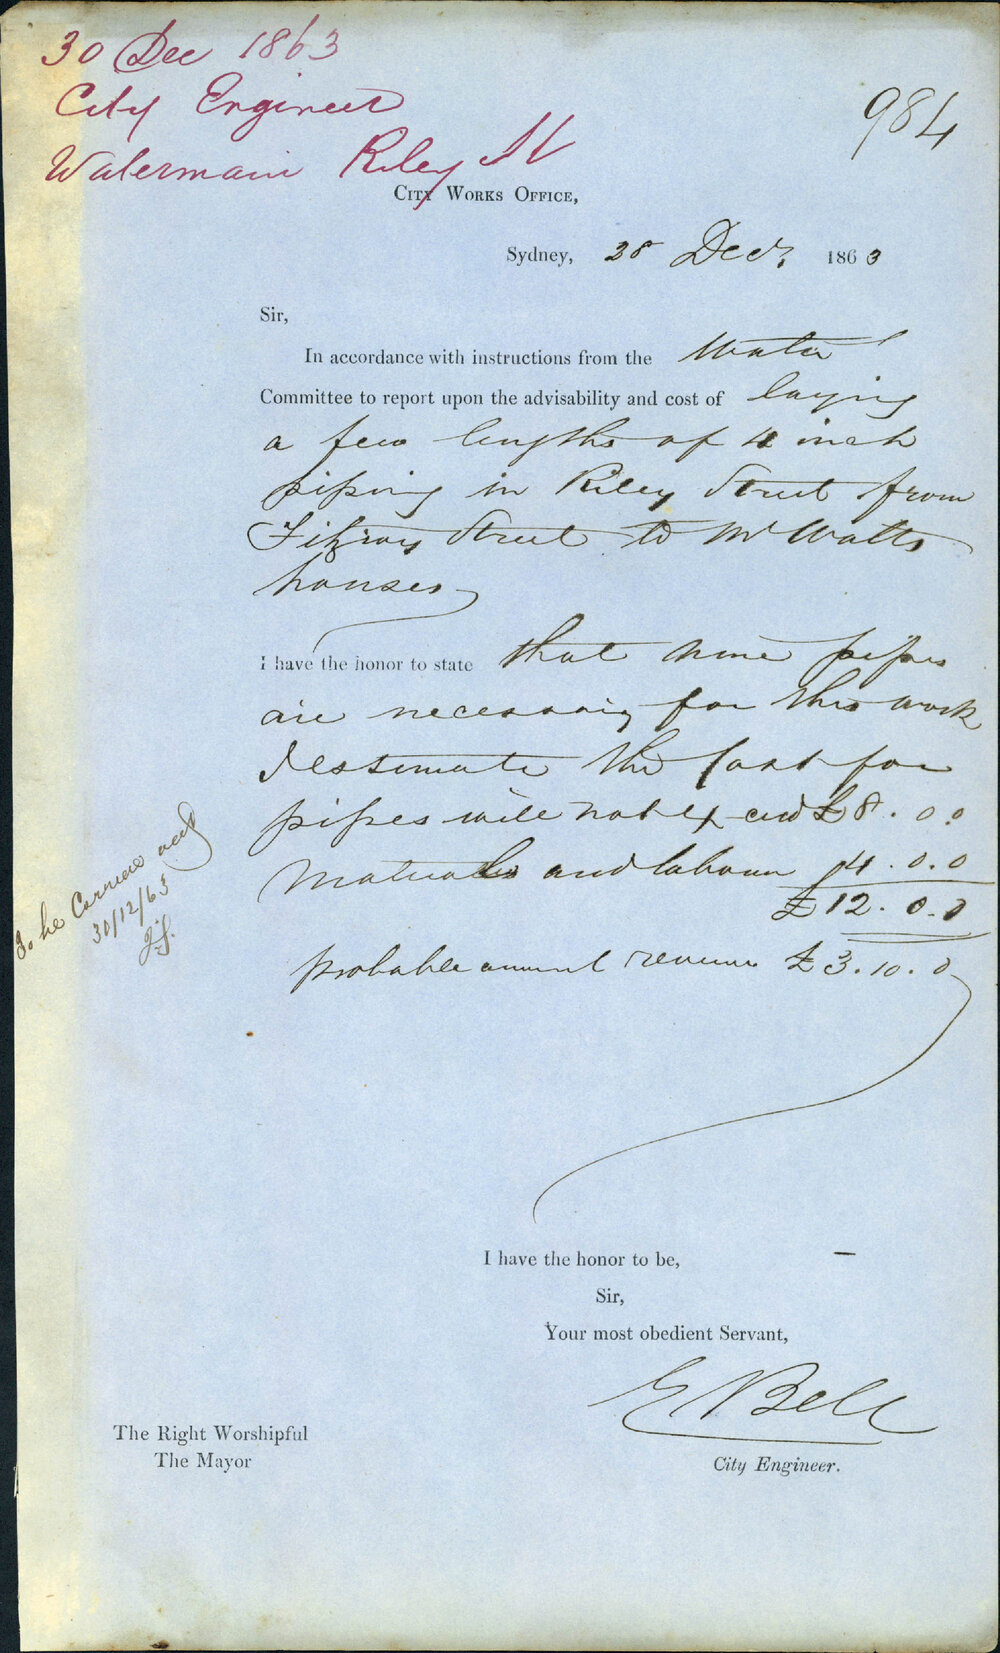 30 Dec 1863
City Engineer
Watermain Riley St
984
City Works Office,
Sydney, 28 Decr. 1863
Sir,
In accordance with instructions from the Water
Committee to report upon the advisability and cost of laying
a few lengths of 4 inch
piping in Riley Street from
Fitzroy Street to Mr Watts
houses
I have the honor to state that nine pipes
are necessary for this work
I estimate the cost for
pipes will not exceed £8.0.0
Materials and labour 4.0.0
£12.0.0
probable annual revenue £3.10.0
To be Carried out
30/12/63
I have the honor to be,
Sir,
Your most obedient Servant,
E Bell
City Engineer.
The Right Worshipful
The Mayor